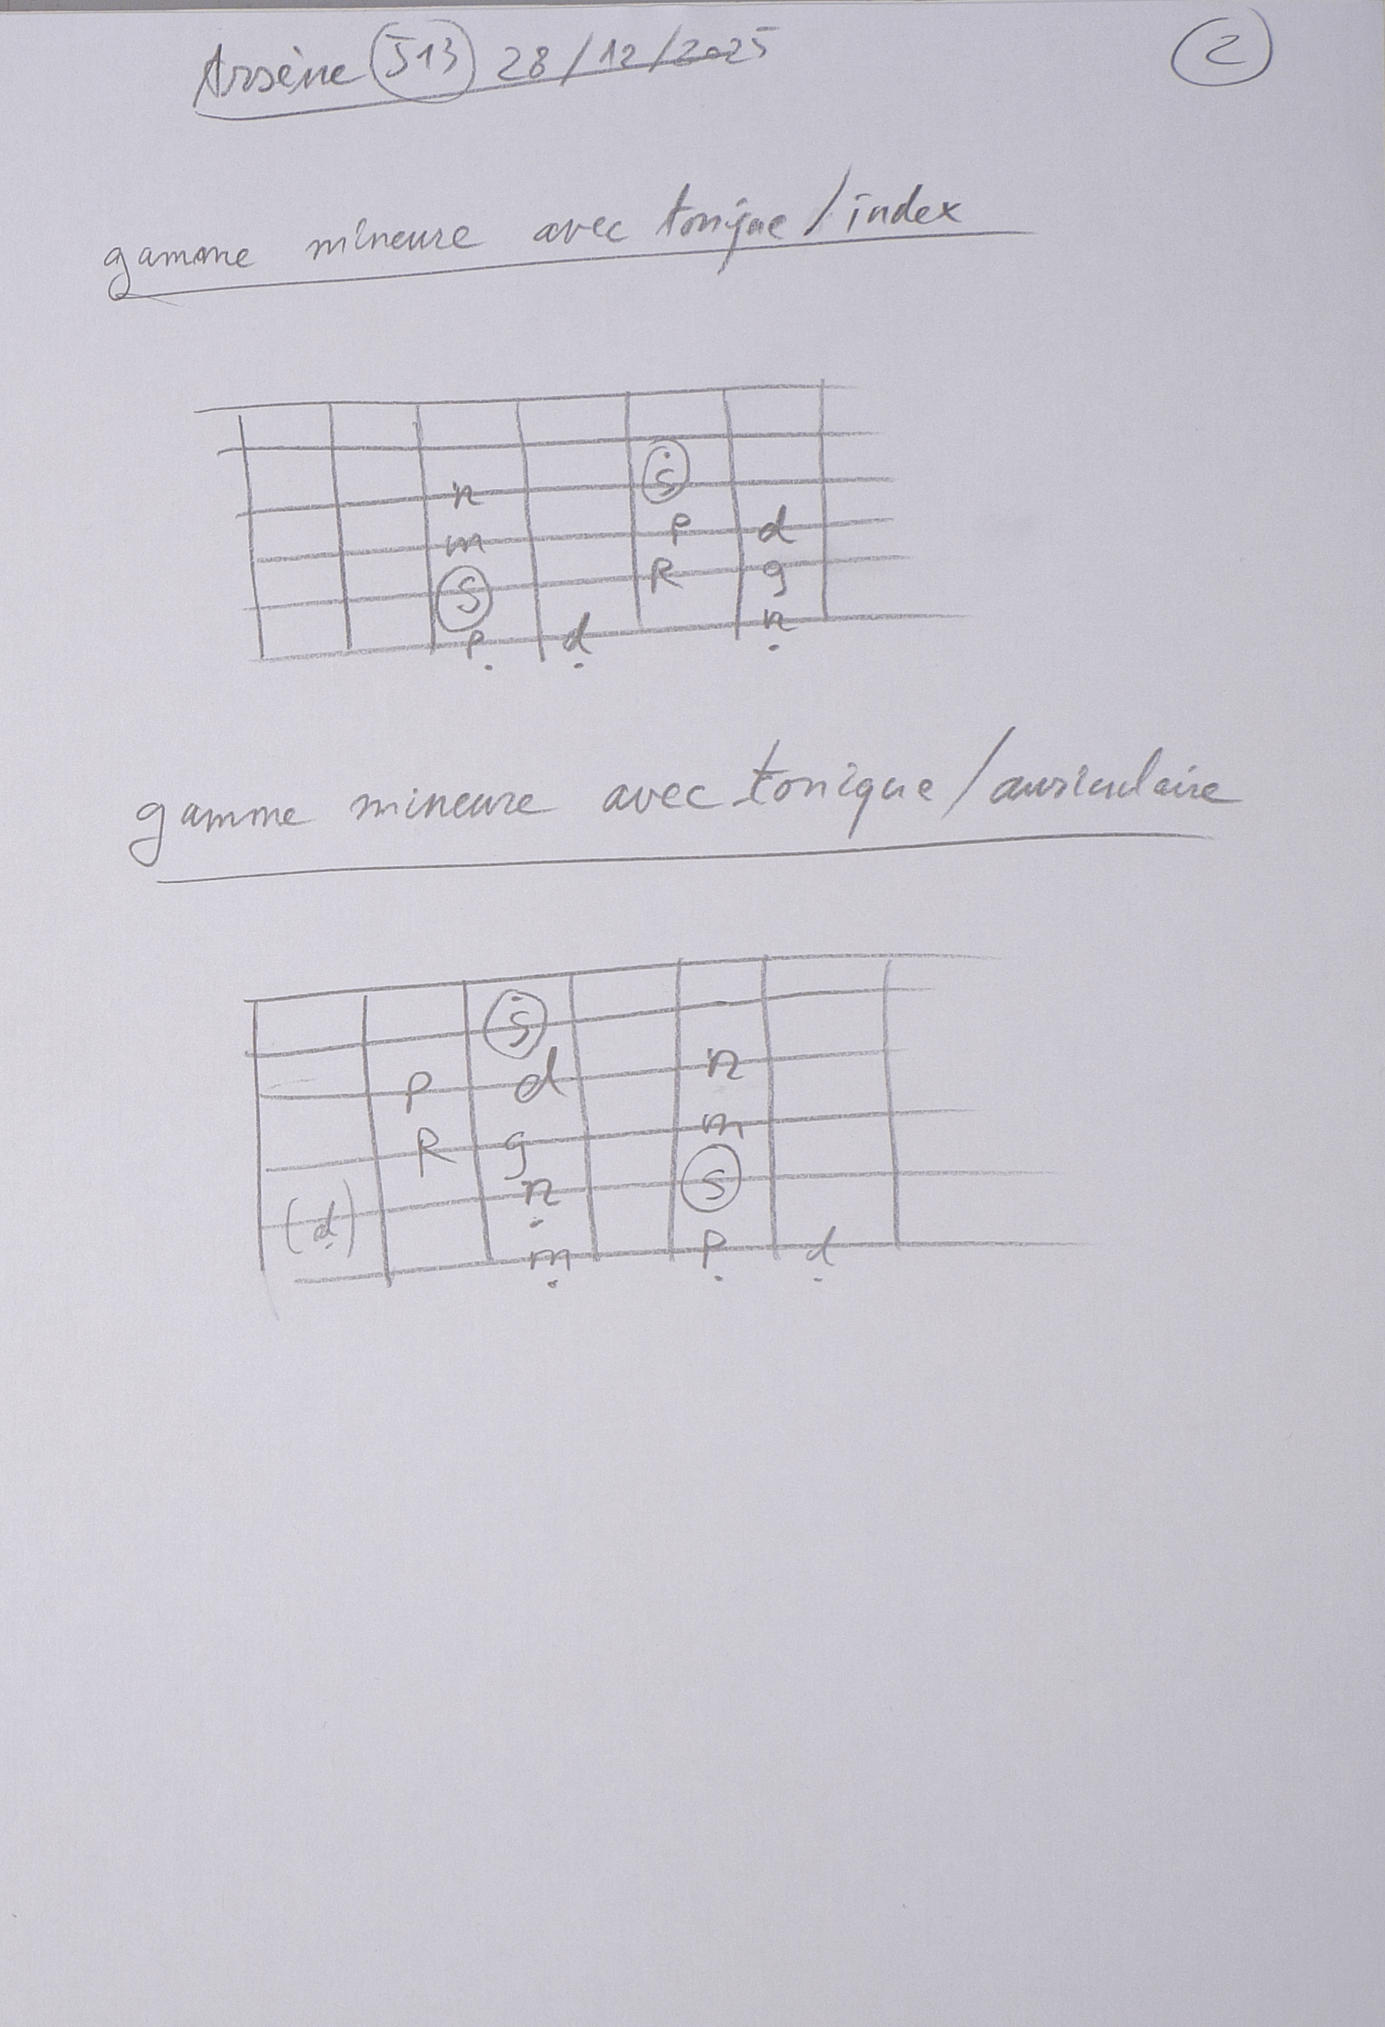 Arsène 513 28/12/2025 2
gamme mineure avec tonique/index
n ṡ
m p d
S R g
p d n
gamme mineure avec tonique/auriculaire
ṡ
p d n
R g m
(d) n s
m p d